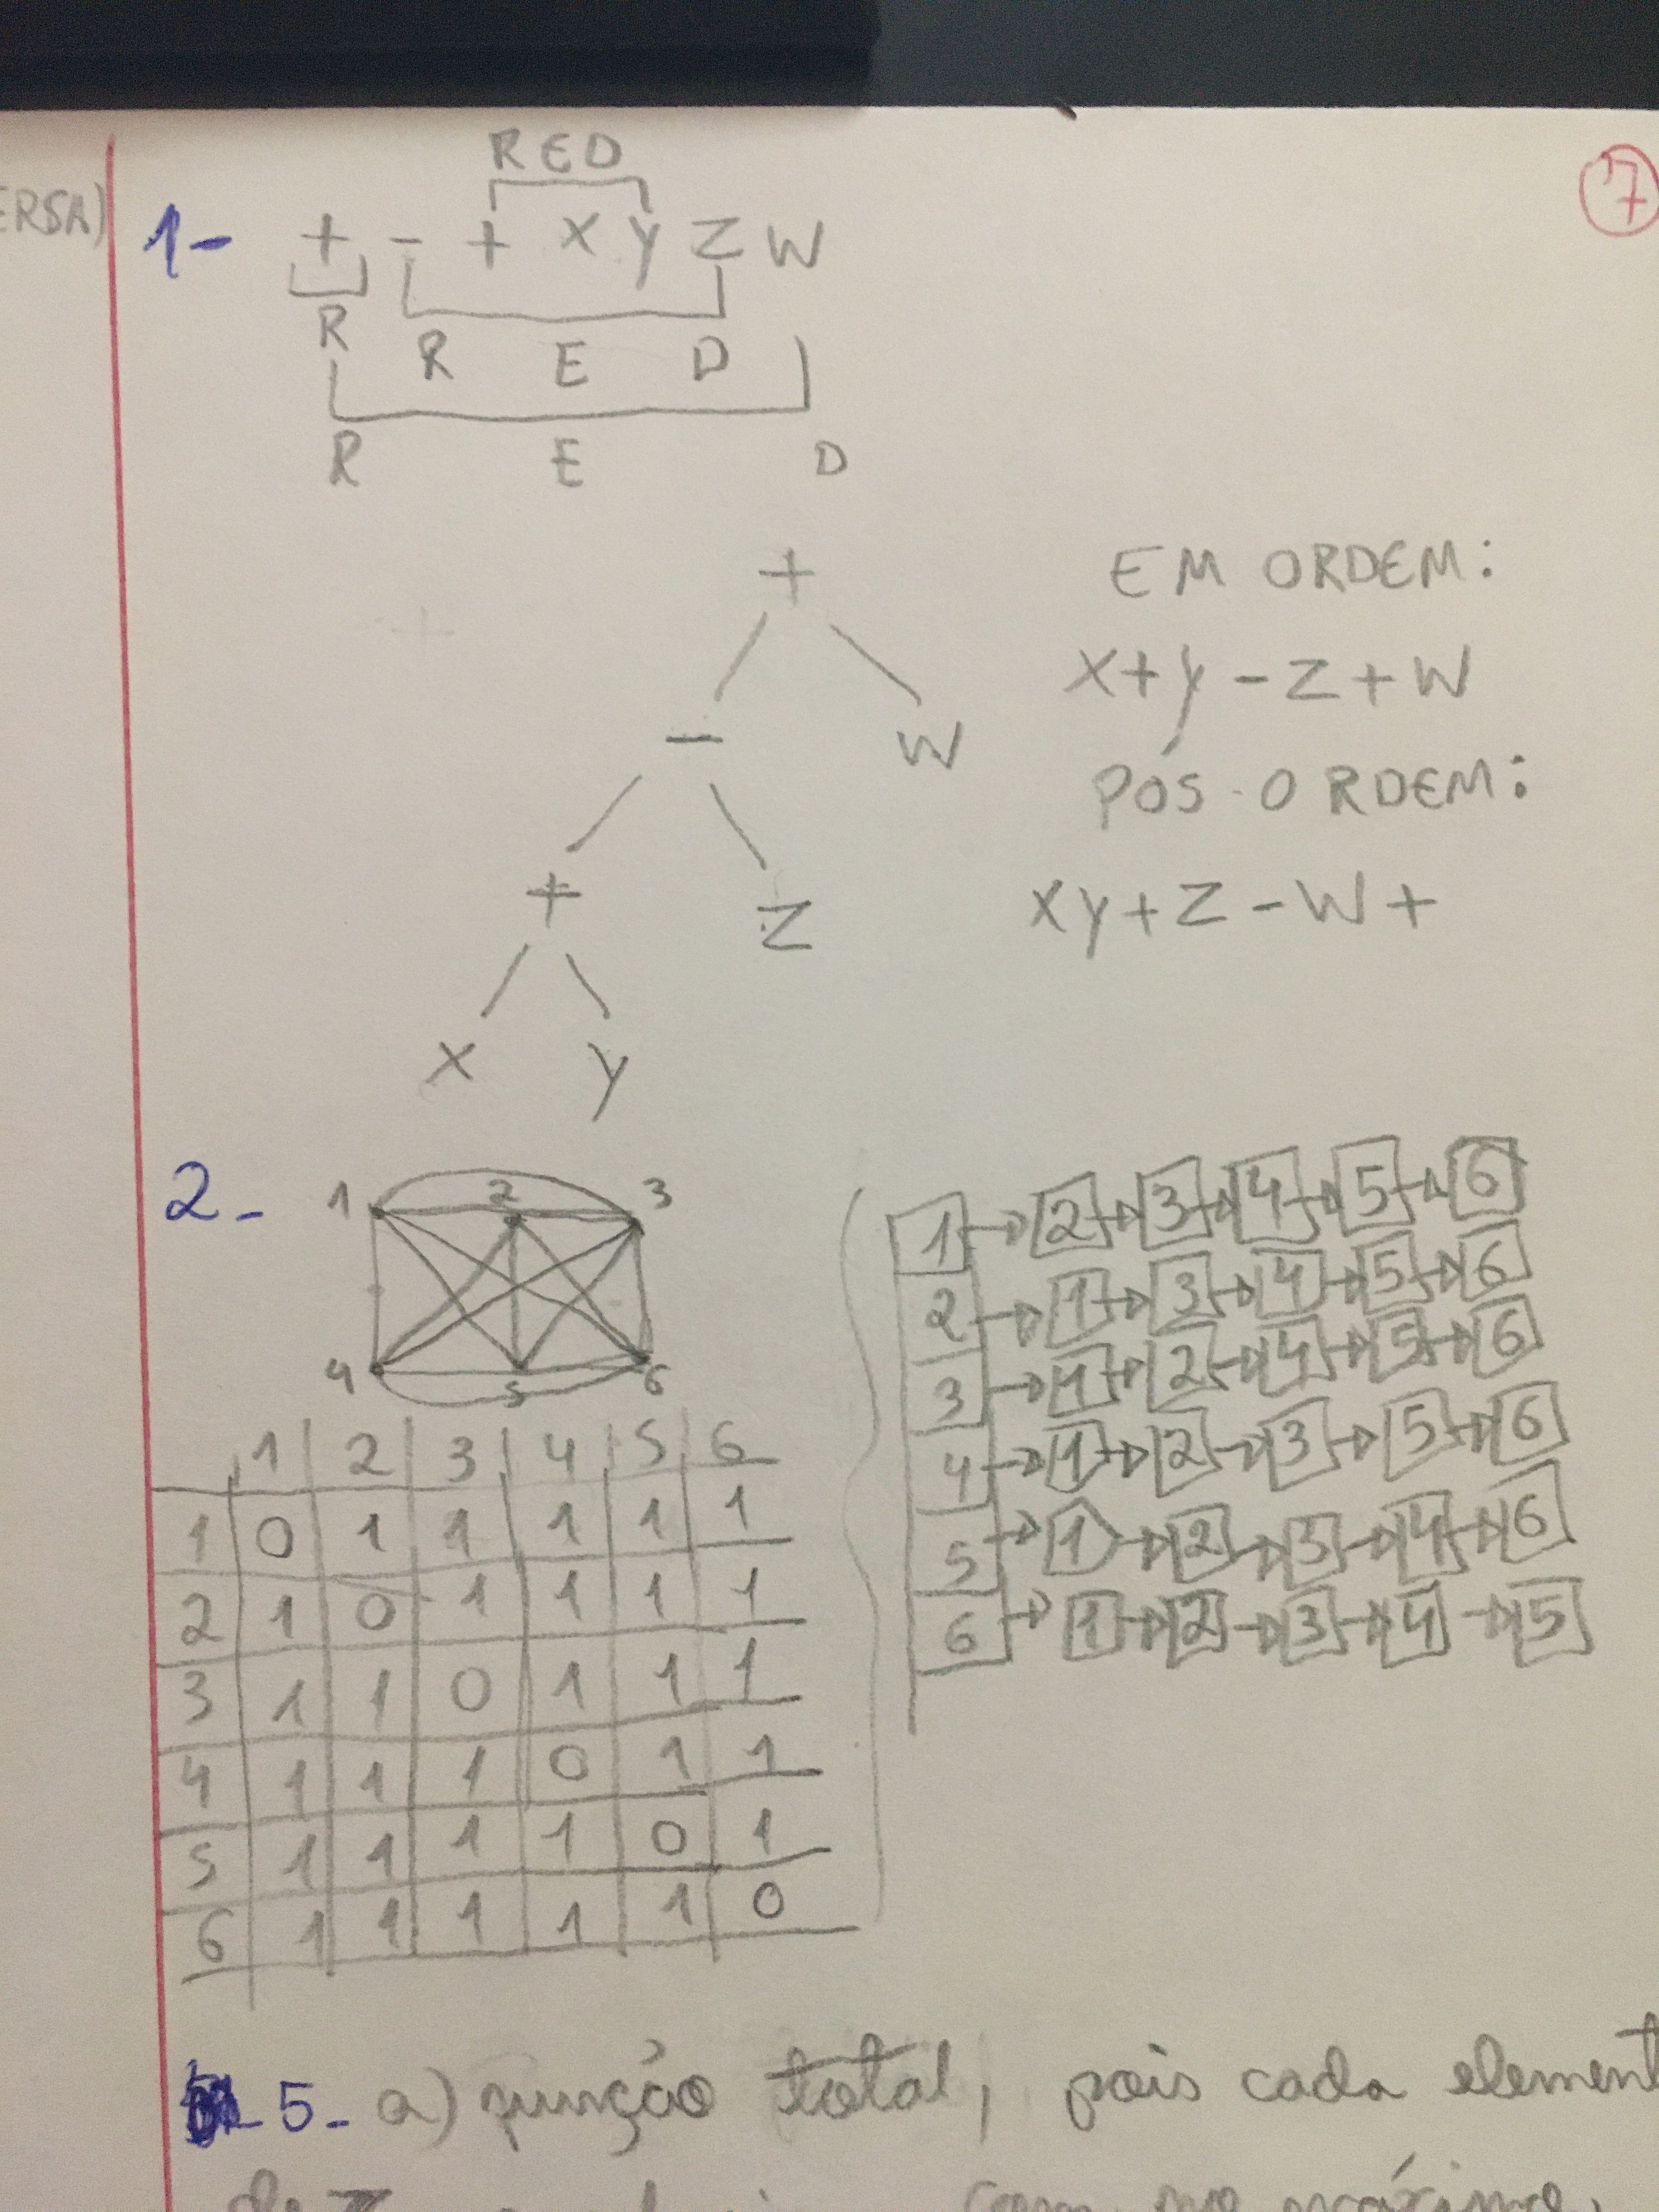 ERSA)
7
RED
1- + - + X Y Z W
R
R E D
R E D
+
- W
+ Z
X Y
EM ORDEM:
X+Y-Z+W
PÓS-ORDEM:
XY+Z-W+
2-
1 2 3
4 5 6
1 2 3 4 5 6
1 0 1 1 1 1 1
2 1 0 1 1 1 1
3 1 1 0 1 1 1
4 1 1 1 0 1 1
5 1 1 1 1 0 1
6 1 1 1 1 1 0
1 → 2 → 3 → 4 → 5 → 6
2 → 1 → 3 → 4 → 5 → 6
3 → 1 → 2 → 4 → 5 → 6
4 → 1 → 2 → 3 → 5 → 6
5 → 1 → 2 → 3 → 4 → 6
6 → 1 → 2 → 3 → 4 → 5
5- a) função total, pois cada element
com no máximo,